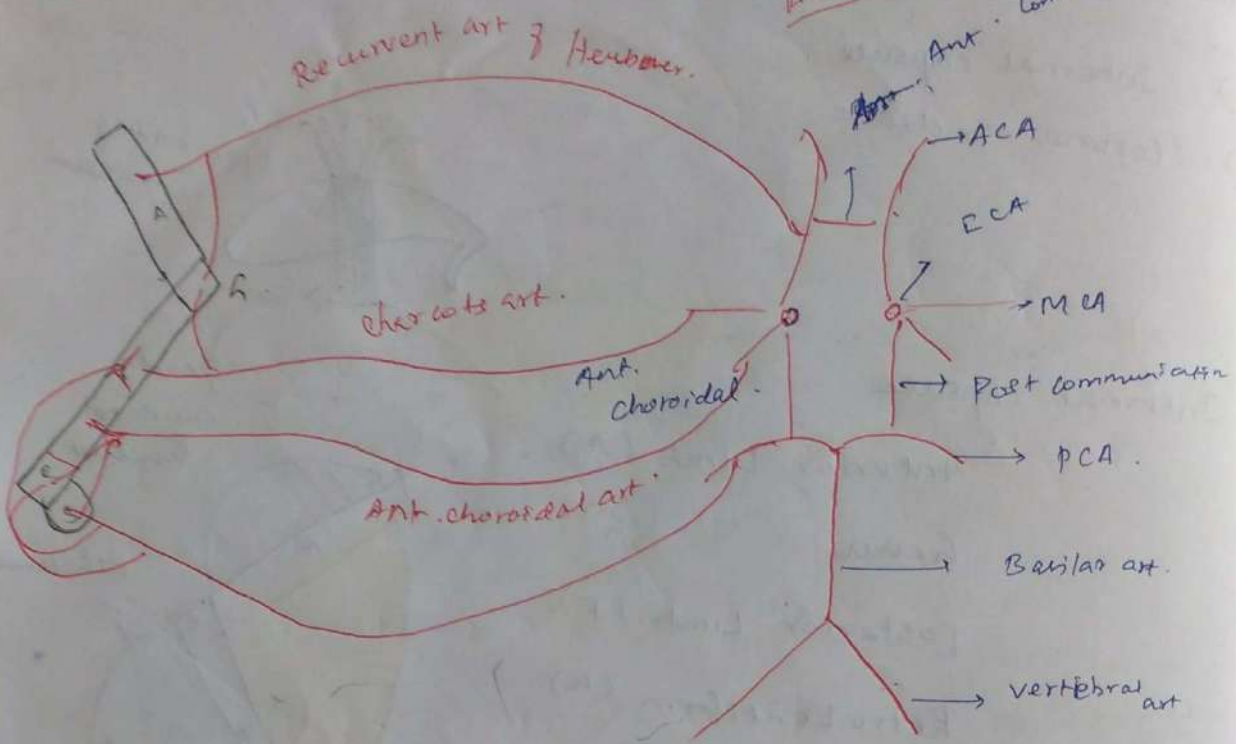 Recurrent art of Heubner.
Ant. Com
ACA
ECA
MCA
A
G.
Charcots art.
Ant.
choroidal.
Post communicatin
PCA.
Ant. choroidal art.
Basilar art.
vertebral
art